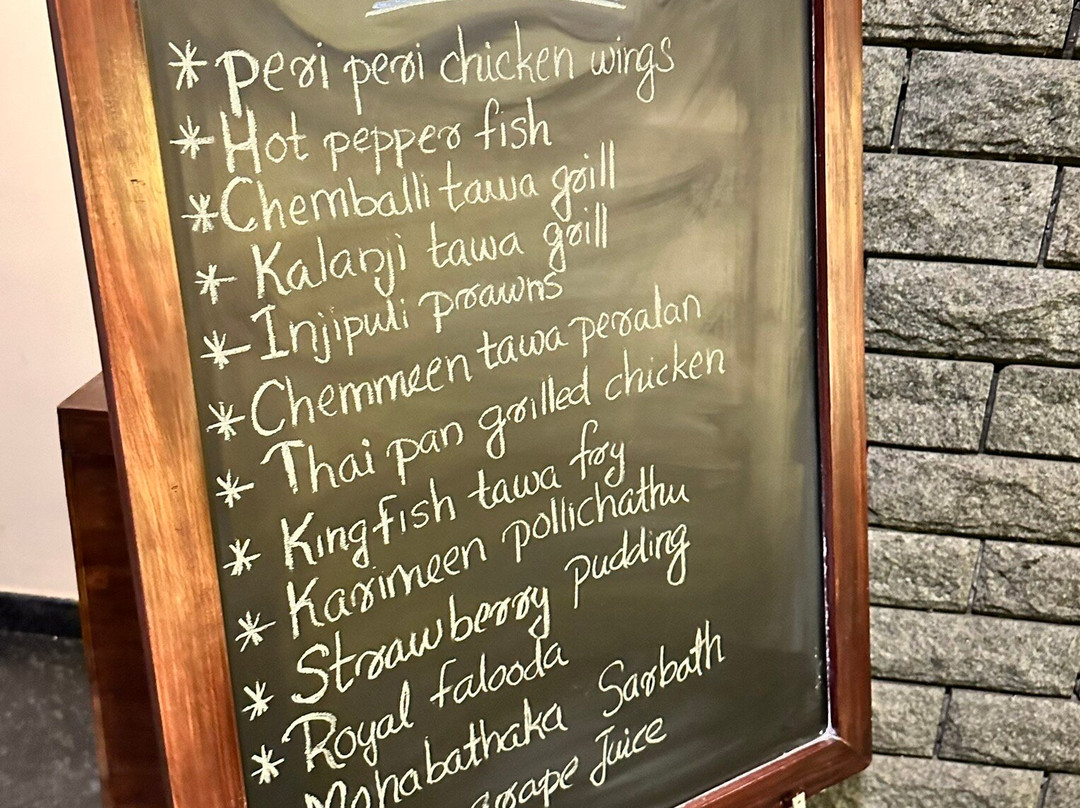 * Peri peri chicken wings
* Hot pepper fish
* Chemballi tawa grill
* Kalanji tawa grill
* Injipuli prawns
* Chemmeen tawa peralan
* Thai pan grilled chicken
* Kingfish tawa fry
* Karimeen pollichathu
* Strawberry pudding
* Royal falooda
Mohabathaka Sarbath
grape Juice